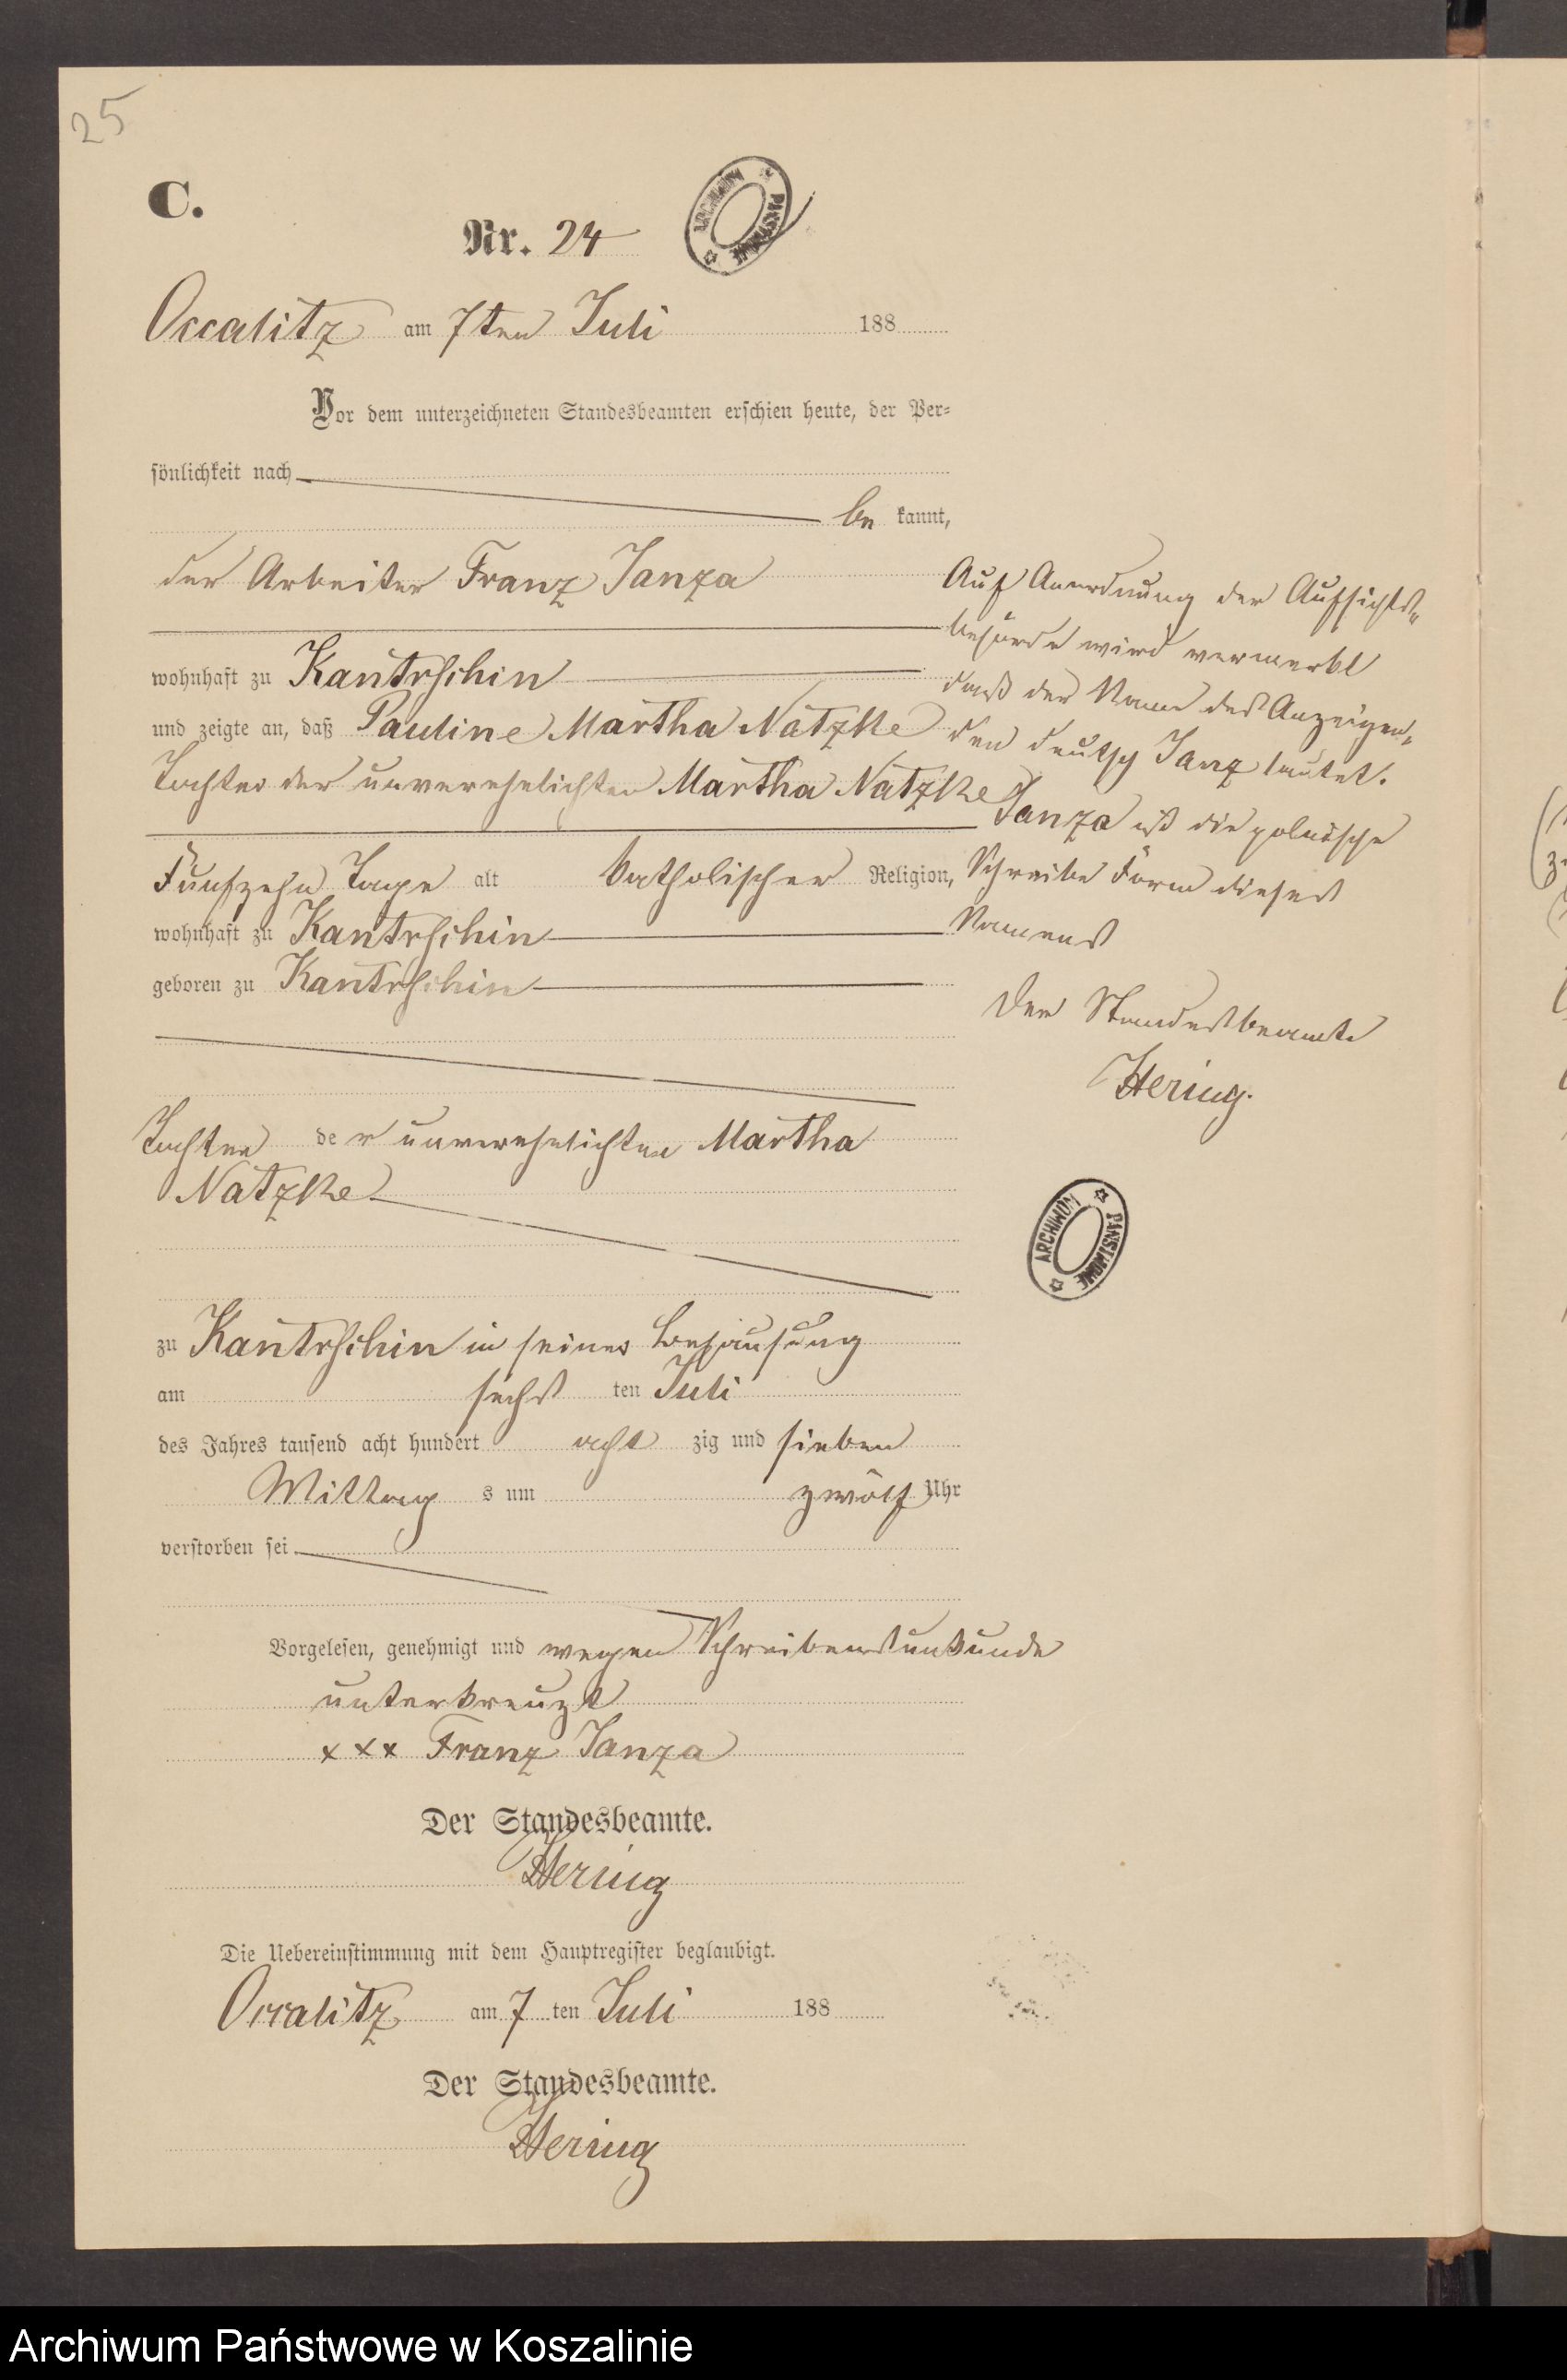 25
C.
Nr. 24
ARCHIWUM PAŃSTWOWE
Occalitz am 7ten Juli 188
Vor dem unterzeichneten Standesbeamten erschien heute, der Per-
sönlichkeit nach
be kannt,
der Arbeiter Franz Janza
wohnhaft zu Kantrschin
und zeigte an, daß Pauline Martha Natzke
Tochter der unverehelichten Martha Natzke
Fünfzehn Tage alt katholischer Religion,
wohnhaft zu Kantrschin
geboren zu Kantrschin
Tochter de r unverehelichten Martha
Natzke
zu Kantrschin in seiner Behausung
am sechs ten Juli
des Jahres tausend acht hundert acht zig und sieben
Mittag s um zwölf Uhr
verstorben sei
Vorgelesen, genehmigt und wegen Schreibensunkunde
unterkreuzt
xxx Franz Janza
Der Standesbeamte.
Hering
Die Uebereinstimmung mit dem Hauptregister beglaubigt.
Occalitz am 7 ten Juli 188
Der Standesbeamte.
Hering
Auf Anordnung der Aufsichts-
behörde wird vermerkt
daß der Name des Anzeigen-
den deutsch Janz lautet.
Janza ist die polnische
Schreibe Form dieses
Namens
Der Standesbeamte
Hering.
ARCHIWUM PAŃSTWOWE
Archiwum Państwowe w Koszalinie